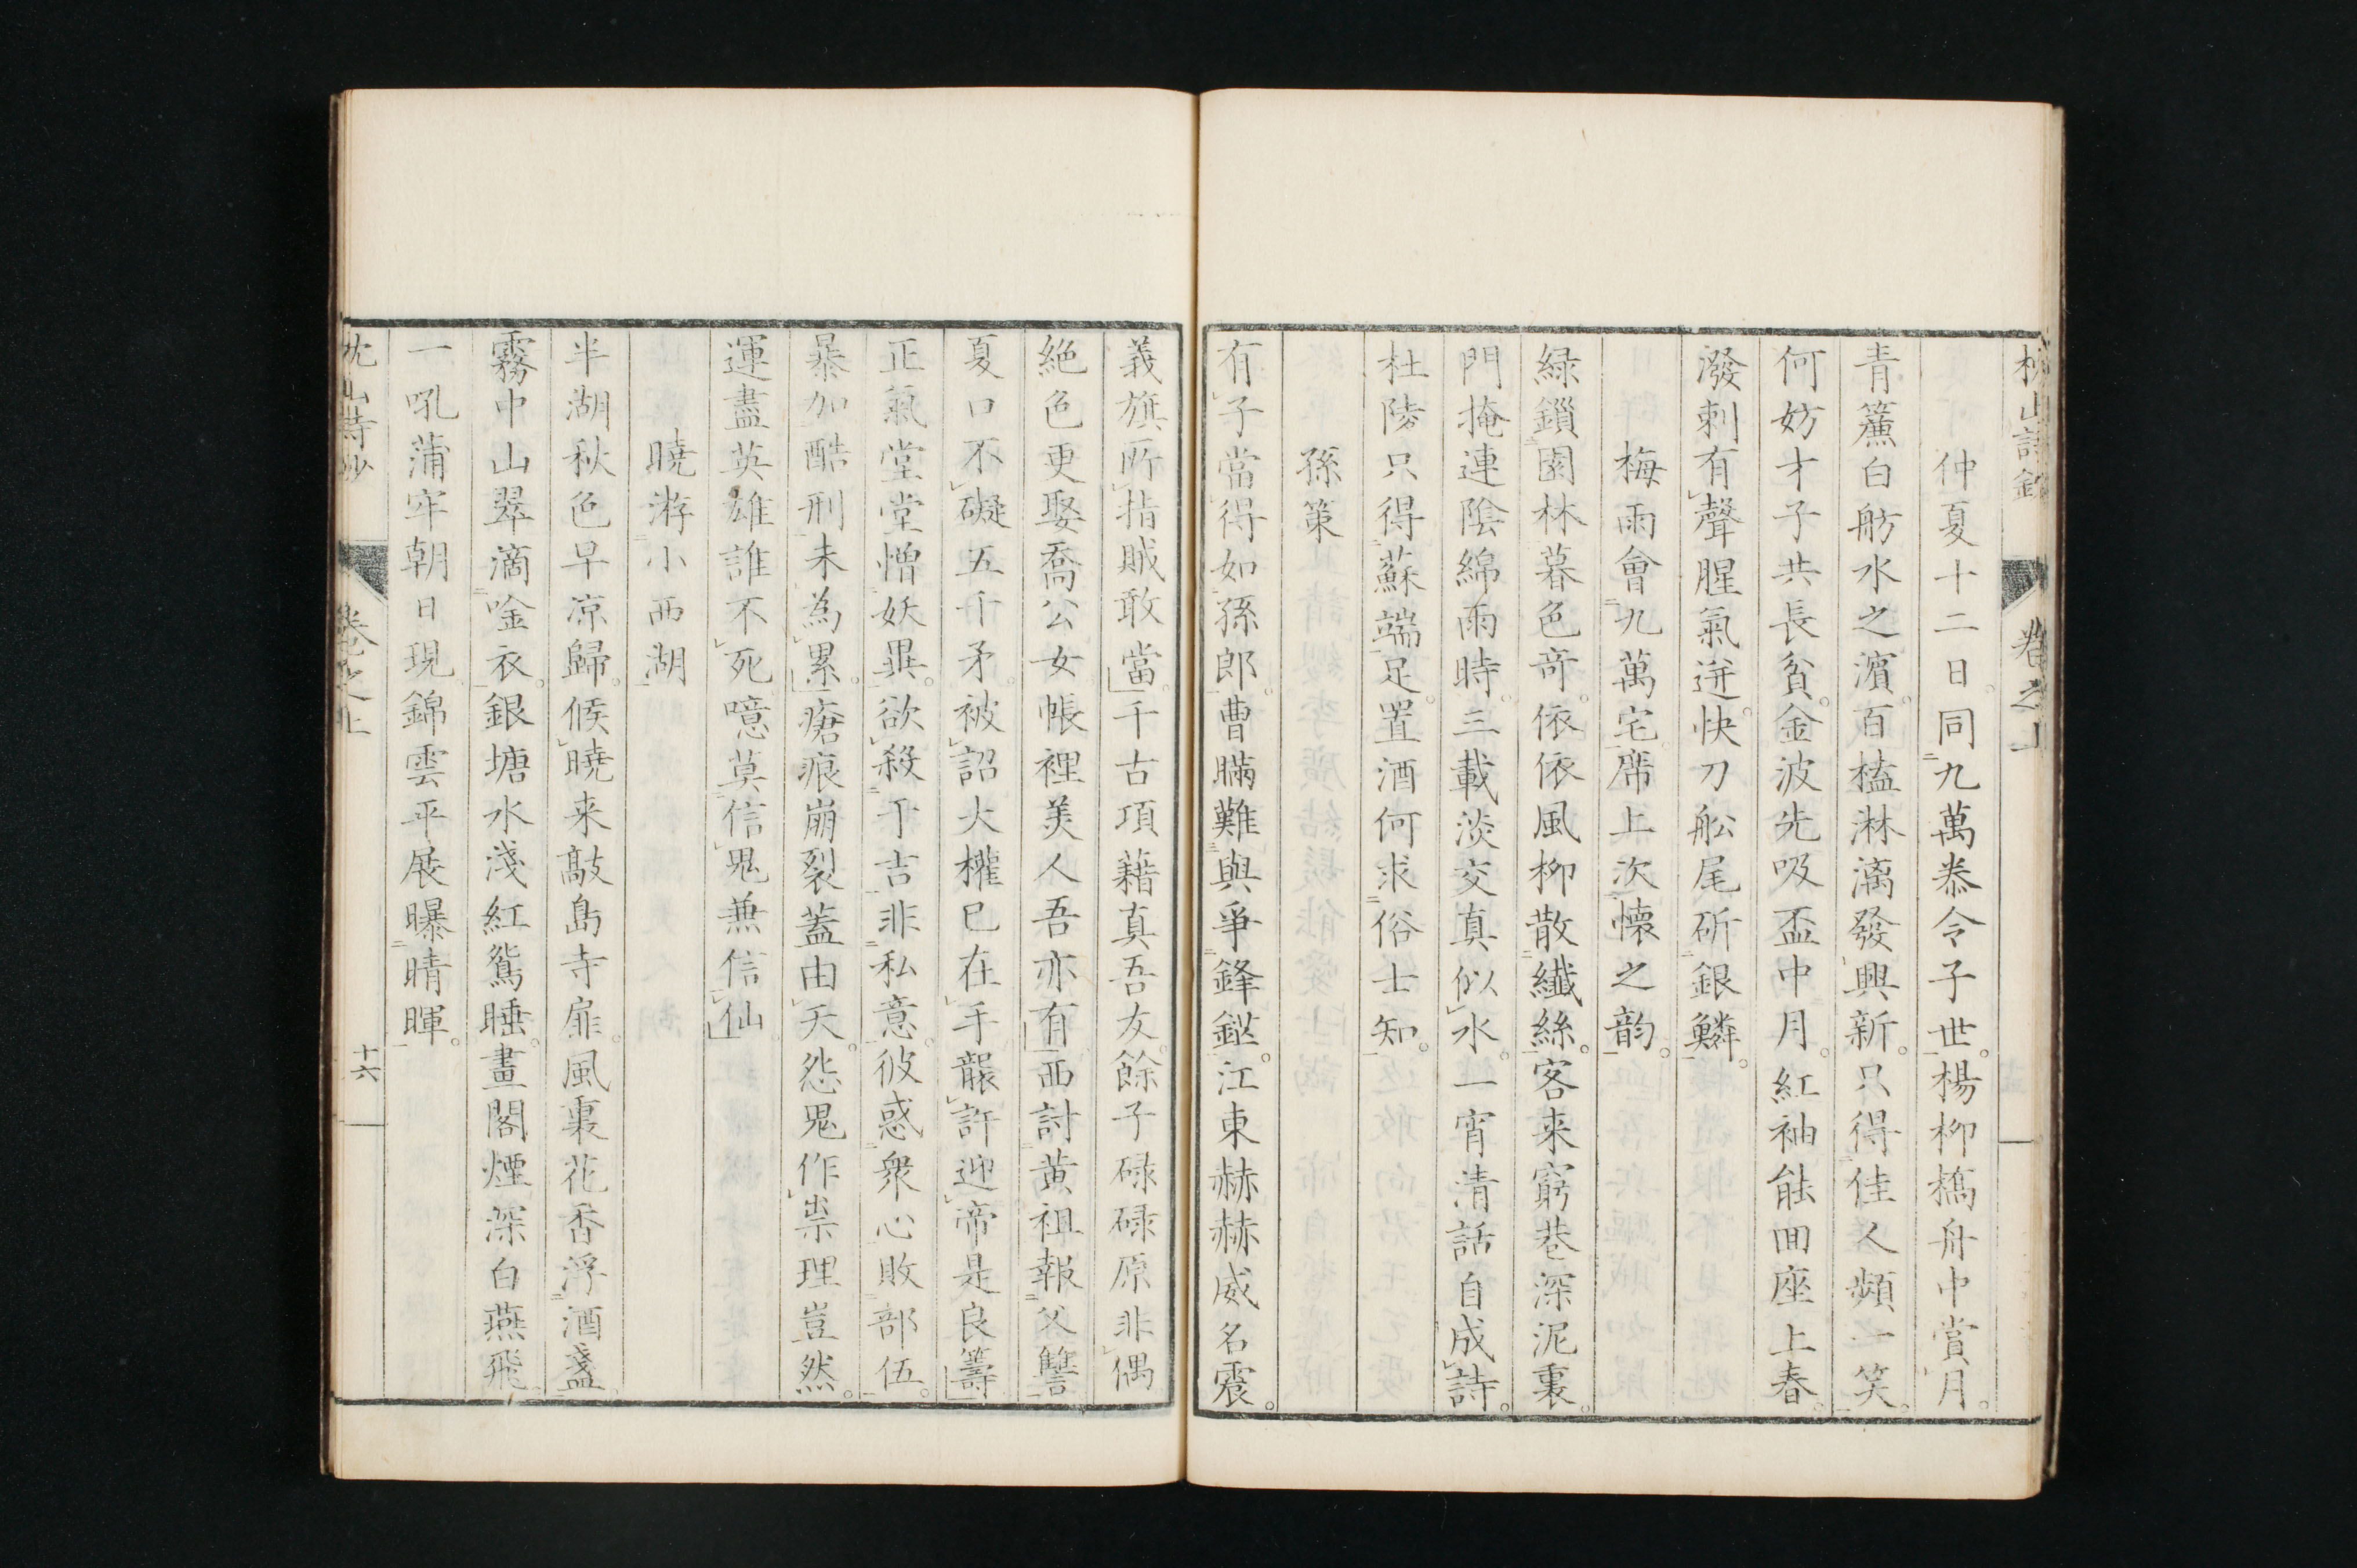 枕山詩鈔 卷之上
仲夏十二日。同九萬恭令子世。楊柳橋舟中賞月。
青簾白舫水之濱。百榼淋漓發興新。只得佳人頻一笑。
何妨才子共長貧。金波先吸盃中月。紅袖能回座上春。
潑剌有聲腥氣迸。快刀舩尾斫銀鱗。
梅雨會九萬宅。席上次懷之韵。
緑鎖園林暮色奇。依依風柳散纖絲。客来窮巷深泥裏。
門掩連陰綿雨時。三載淡交真似水。一宵清話自成詩。
杜陵只得蘇端足。置酒何求俗士知。
孫策
有子當得如孫郎。曹瞞難與爭鋒鋩。江東赫赫威名震。
義旗所指賊敢當。千古項藉真吾友。餘子碌碌原非偶
絕色更娶喬公女帳裡美人吾亦有西討黄祖報父讐
夏口不礙五千矛。被詔大權已在手襲許迎帝是良籌
正氣堂堂憎妖異。欲殺于吉非私意。彼惑衆心敗部伍。
暴加酷刑未為累。瘡痕崩裂蓋由天。怨鬼作祟理豈然。
運盡英雄誰不死噫莫信鬼兼信仙
曉游小西湖
半湖秋色早凉歸。候曉来敲島寺扉。風裏花香浮酒盞
霧中山翠滴唫衣。銀塘水淺紅鴛睡。畫閣煙深白燕飛
一吼蒲牢朝日現錦雲平展曝晴暉。
枕山詩鈔 卷之上 十六